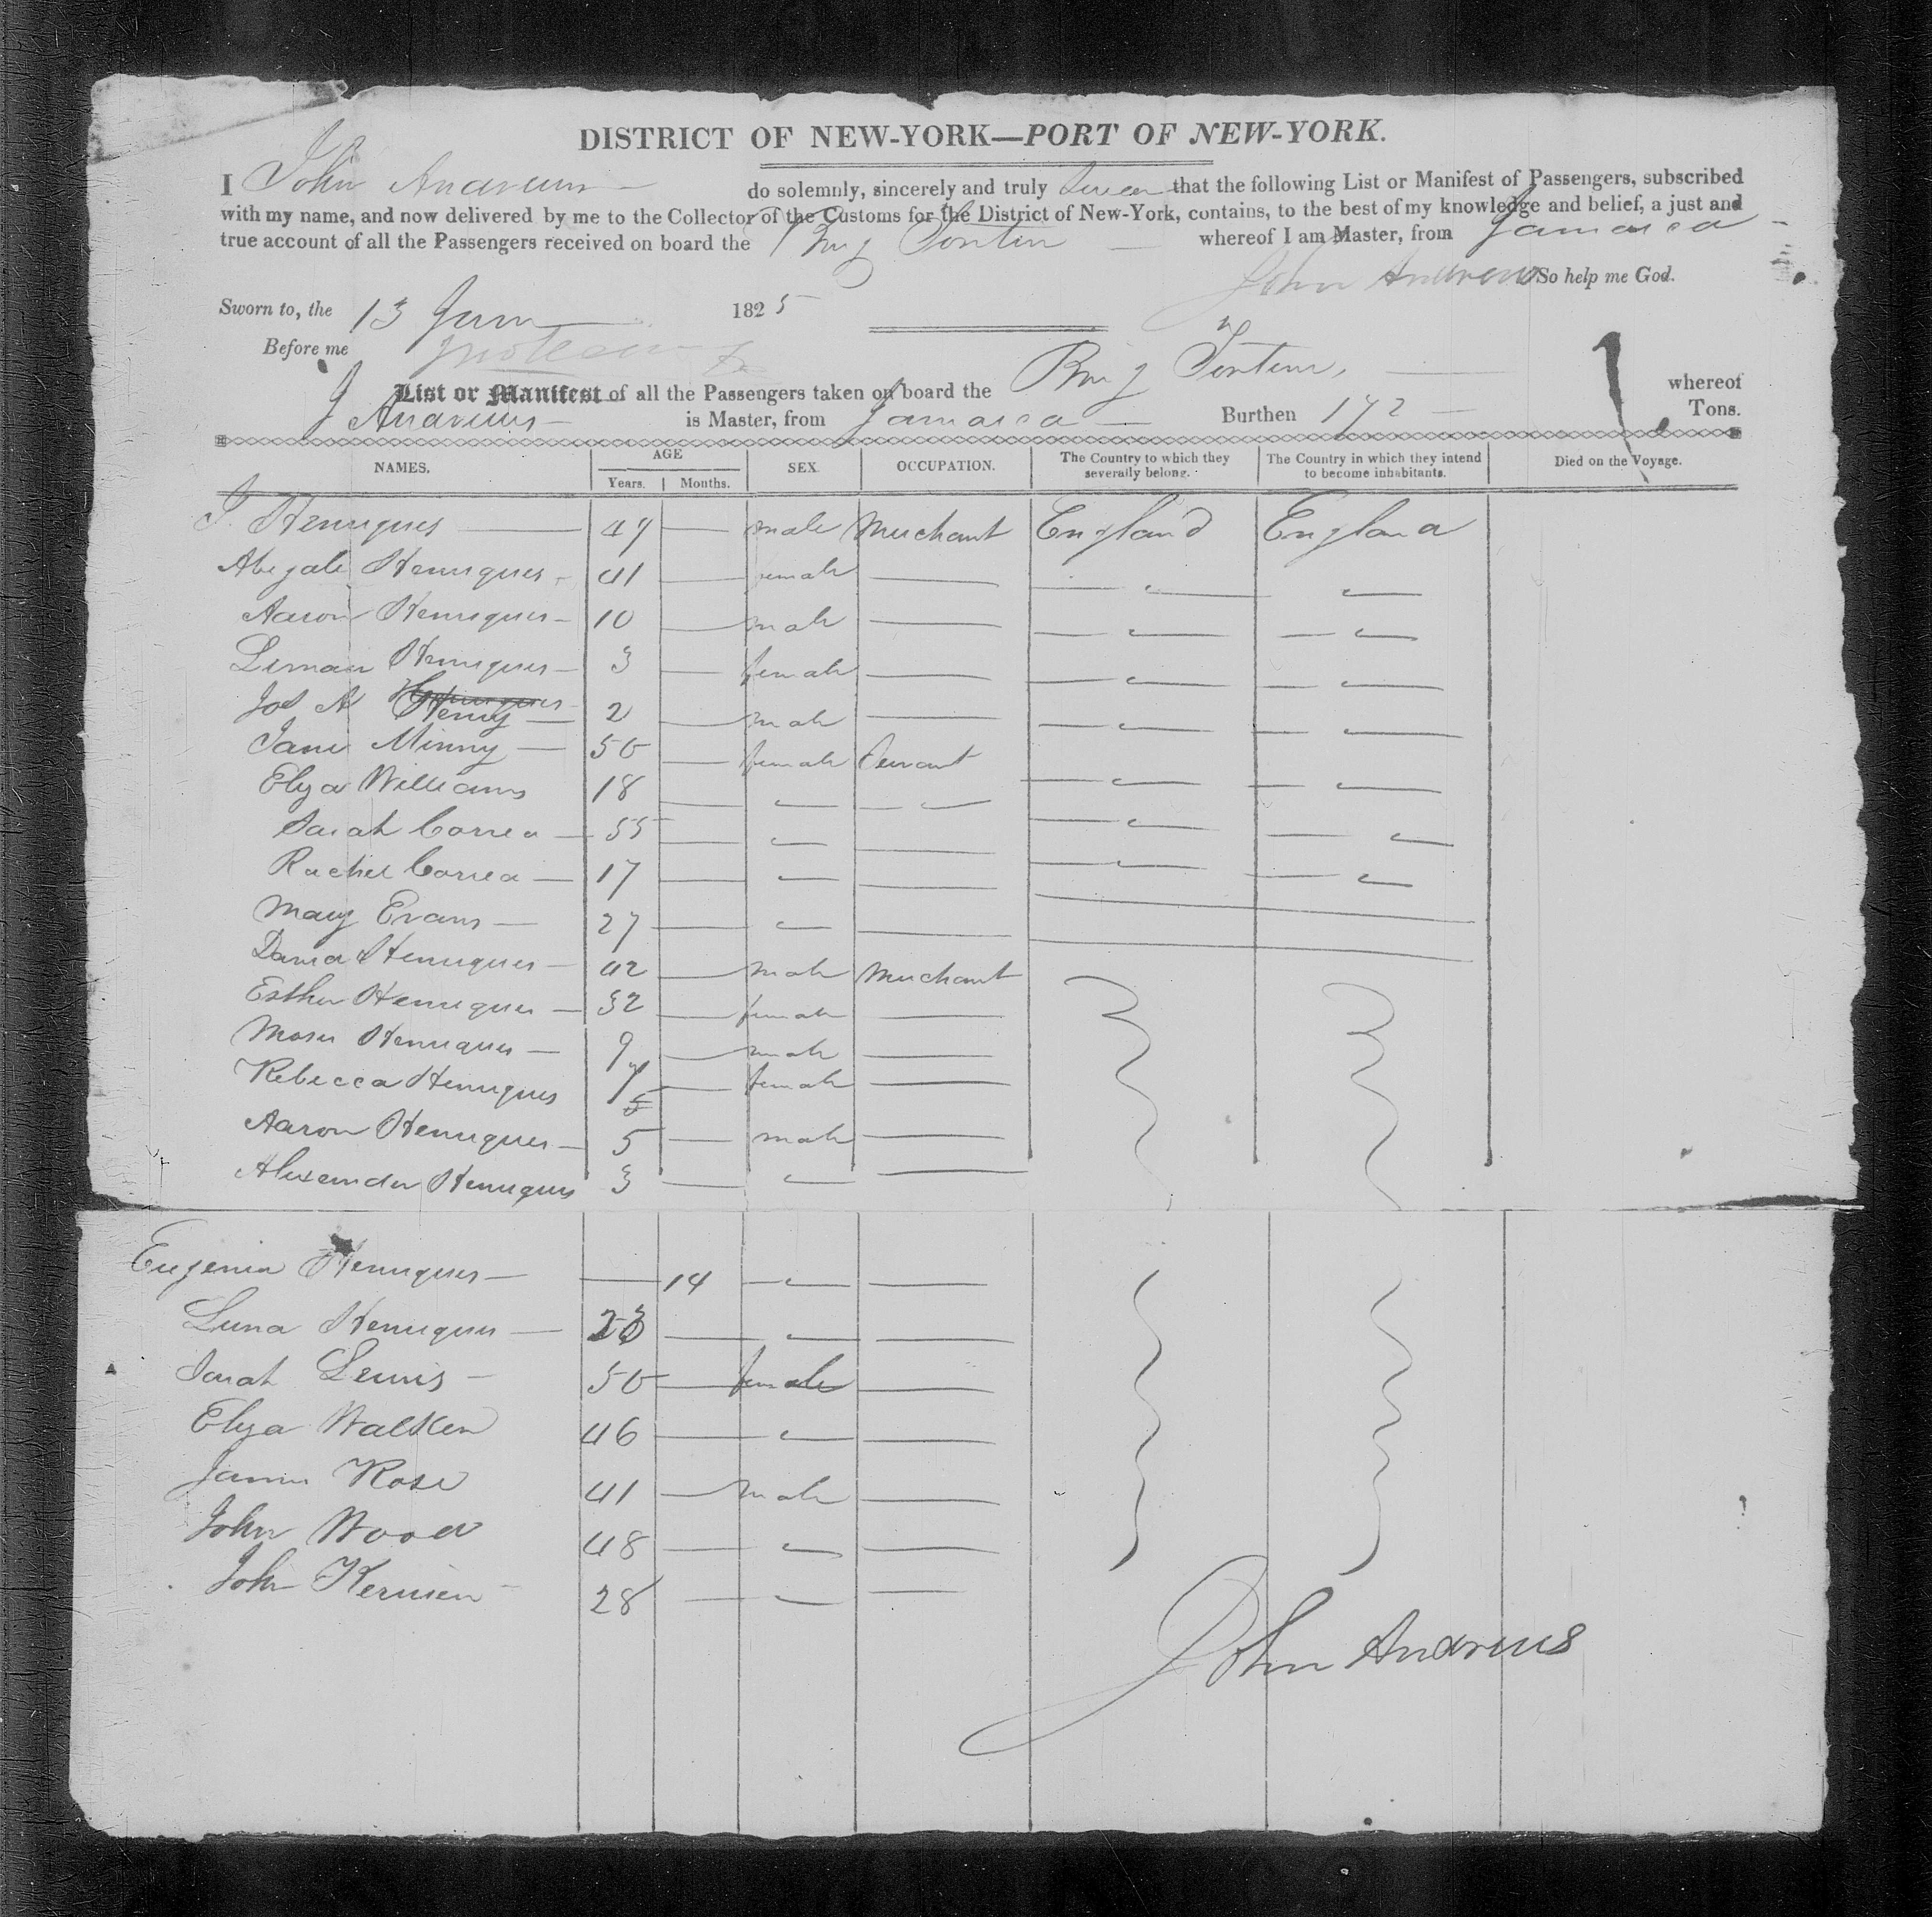 DISTRICT OF NEW-YORK—PORT OF NEW-YORK.
I John Andrews do solemnly, sincerely and truly swear that the following List or Manifest of Passengers, subscribed
with my name, and now delivered by me to the Collector of the Customs for the District of New-York, contains, to the best of my knowledge and belief, a just and
true account of all the Passengers received on board the Brig whereof I am Master, from Jamaica
John Andrews So help me God.
Sworn to, the 13 June 1825
Before me
List or Manifest of all the Passengers taken on board the Brig whereof
J Andrews is Master, from Jamaica Burthen 172 Tons.
NAMES. AGE Years. Months. SEX. OCCUPATION. The Country to which they severally belong. The Country in which they intend to become inhabitants. Died on the Voyage.
Henriques 47 male Merchant England England
Abigale Henriques 41 female
Aaron Henriques 10 male
Henriques 3 female
Jos A Henriques Henry 2 male
Jane Minny 50 female Servant
Elza Williams 18
Sarah Correa 55
Rachel Correa 17
Mary Evans 27
Henriques 42 male Merchant
Esther Henriques 32 female
Moses Henriques 9 male
Rebecca Henriques 7 female
Aaron Henriques 5 male
Alexander Henriques 3
Eugenia Henriques 14
Luna Henriques
Sarah Lewis 50 female
Elza Walker 46
James Rose 41 male
John Wood 48
John 28
John Andrews